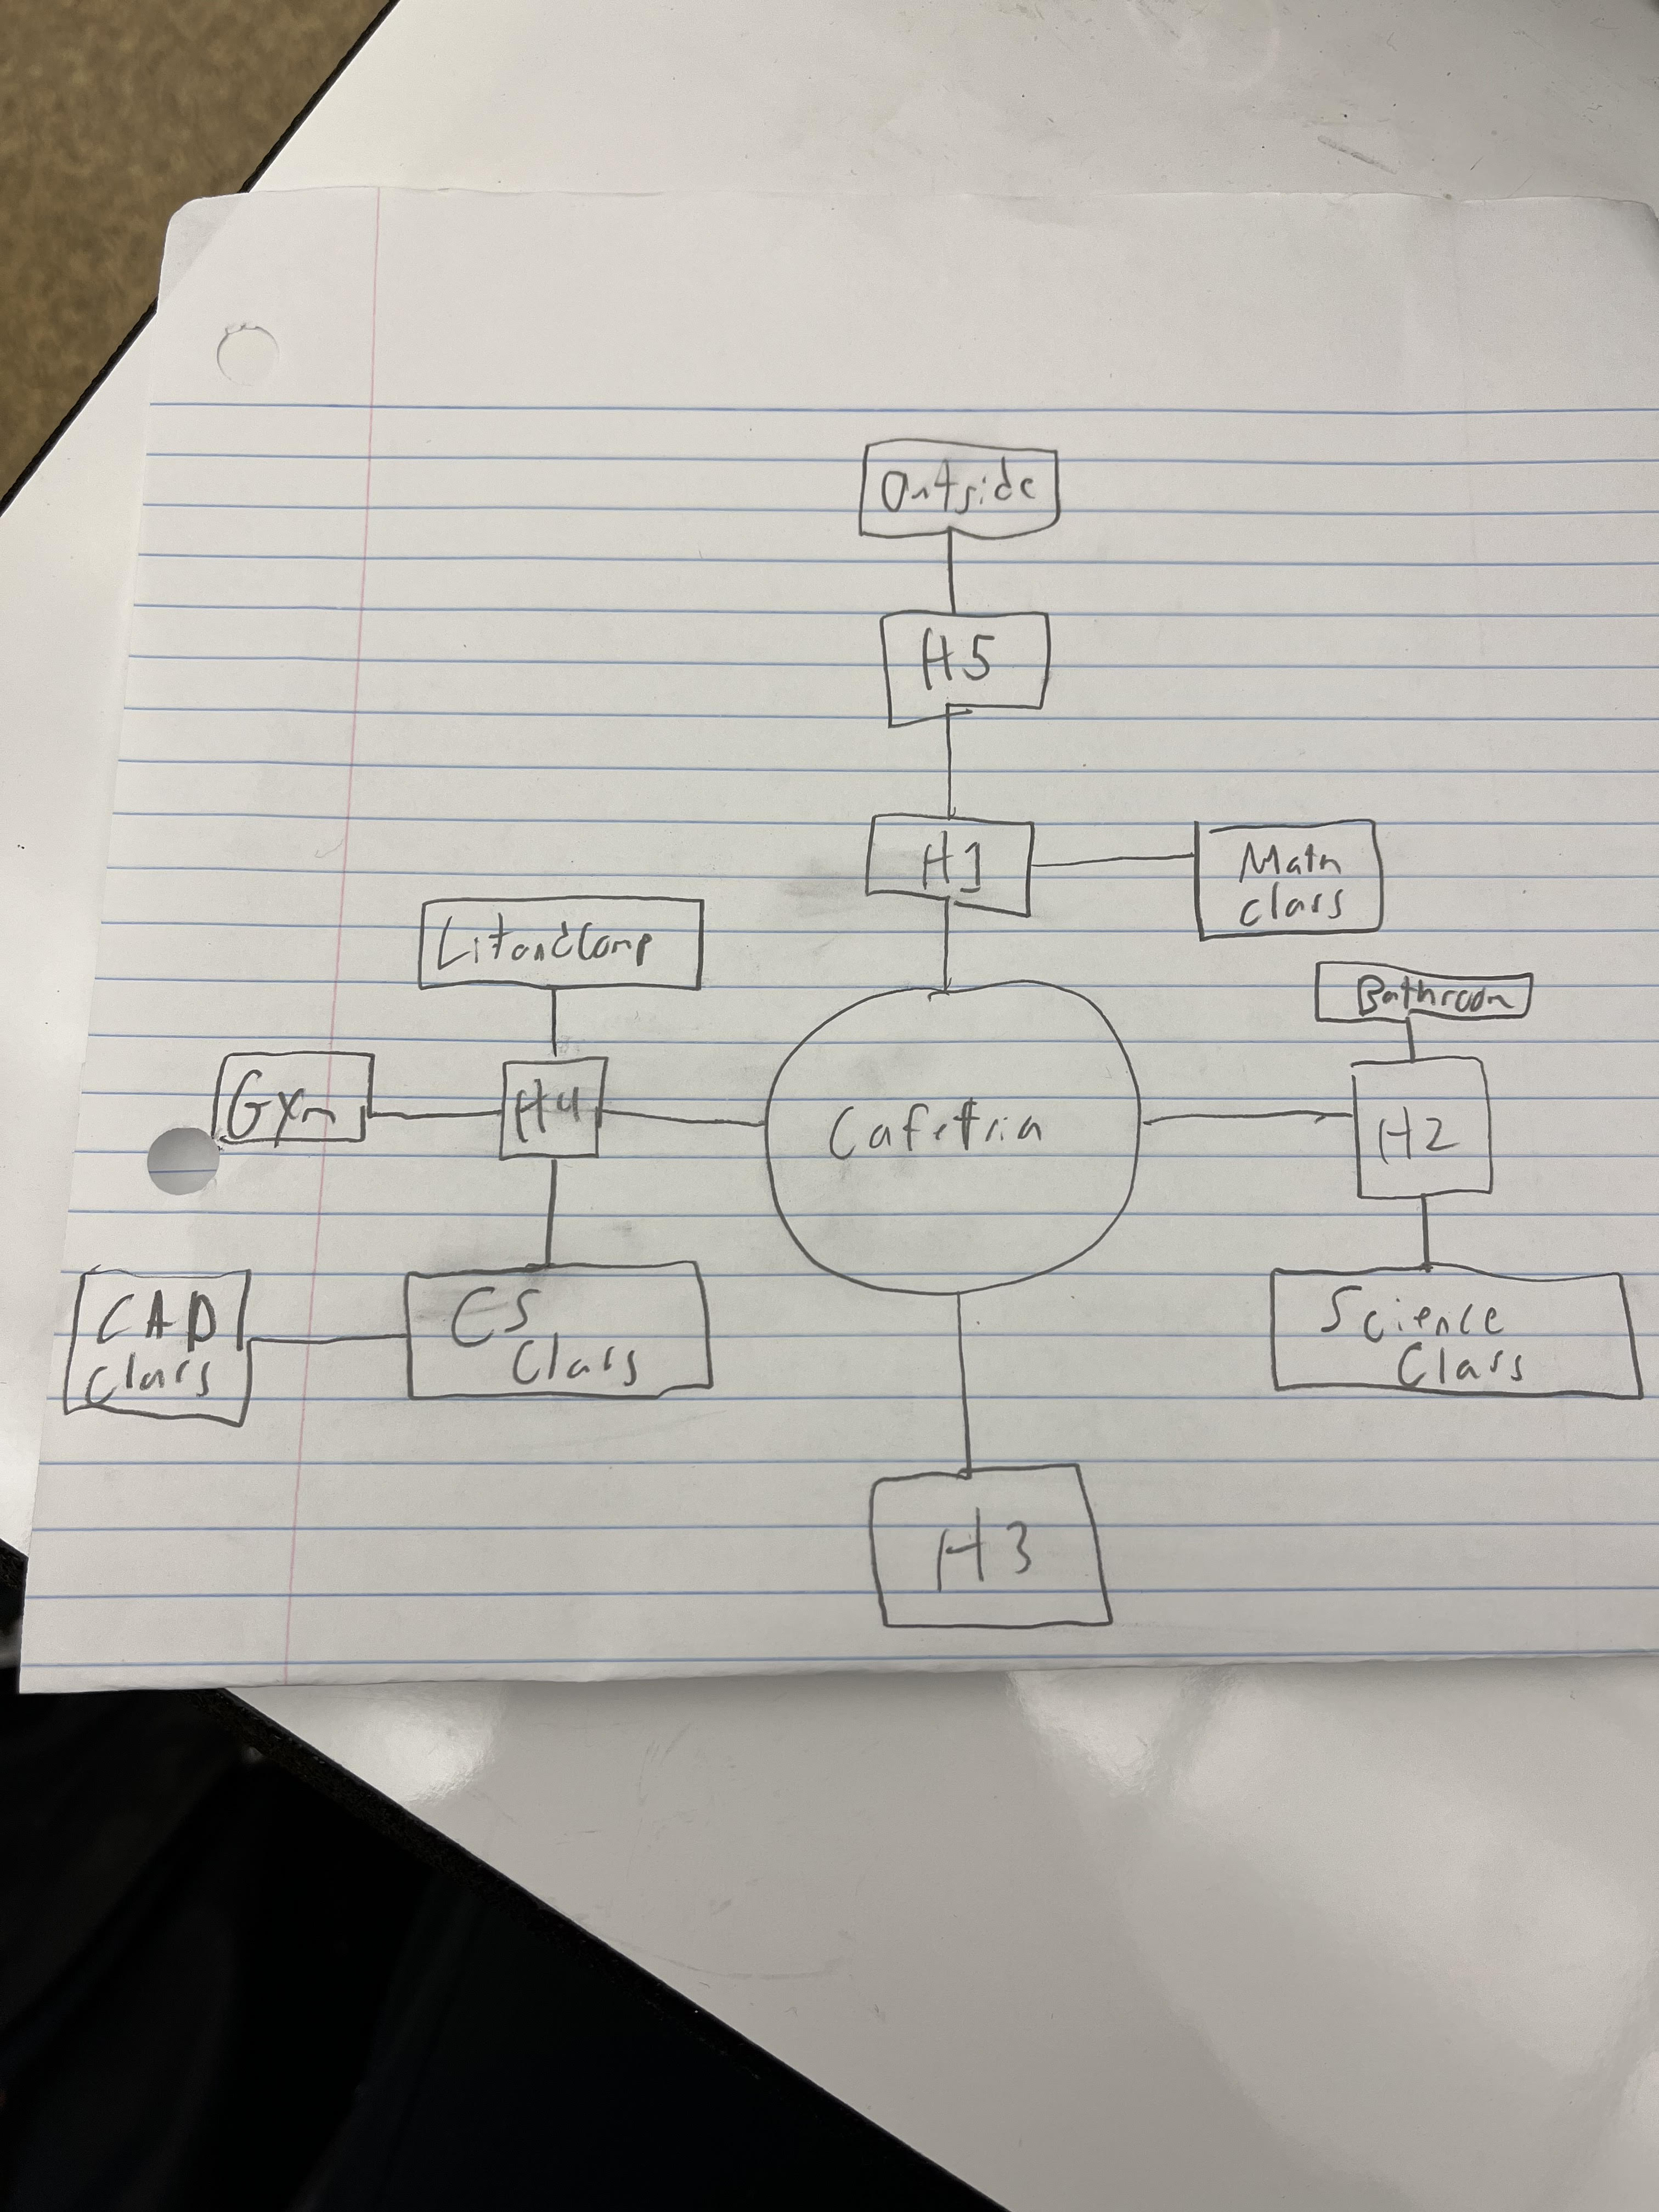 Outside
H5
H1
Math
class
Litandcomp
Bathroom
Gym
H4
Cafetria
H2
CAD
class
CS
Class
Science
Class
H3